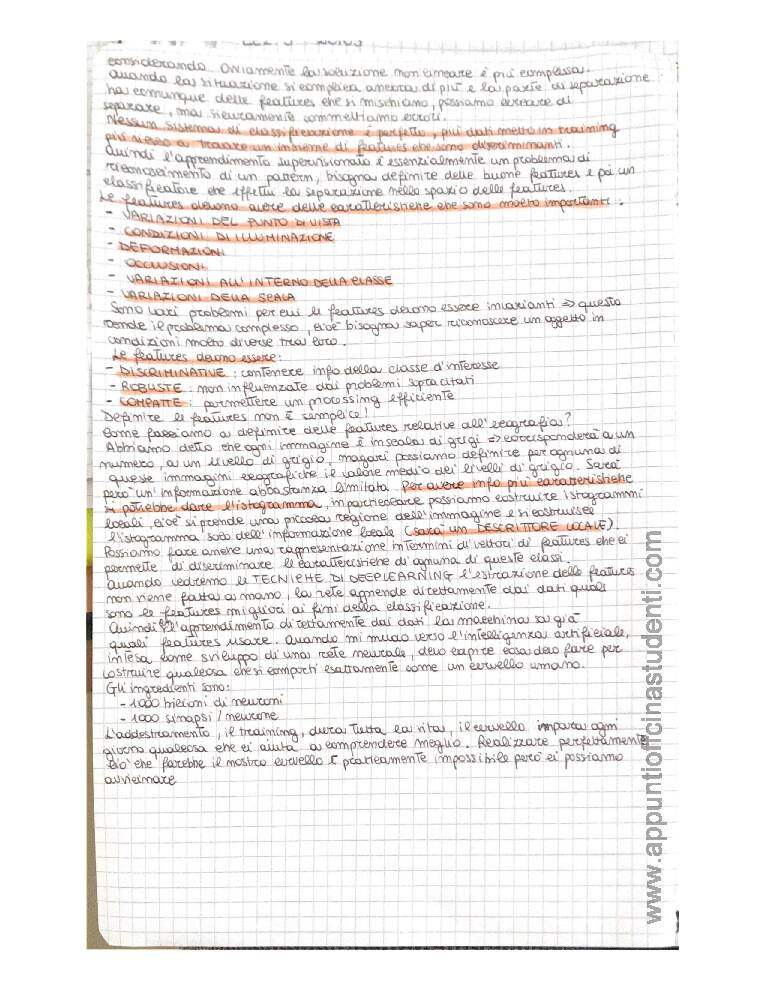 considerando. Ovviamente la soluzione non lineare è più complessa.
Quando la situazione si complica ancora di più e la parte di separazione
ha comunque delle features che si mischiano, possiamo cercare di
separare, ma sicuramente commettiamo errori.
Nessun sistema di classificazione è perfetto, più dati metto in training
più riesco a trovare un insieme di features che sono discriminanti.
Quindi l'apprendimento supervisionato è essenzialmente un problema di
riconoscimento di un pattern, bisogna definire delle buone features e poi un
classificatore che effettui la separazione nello spazio delle features.
Le features devono avere delle caratteristiche che sono molto importanti:
- VARIAZIONI DEL PUNTO DI VISTA
- CONDIZIONI DI ILLUMINAZIONE
- DEFORMAZIONI
- OCCLUSIONI
- VARIAZIONI ALL'INTERNO DELLA CLASSE
- VARIAZIONI DELLA SCALA
Sono vari problemi per cui le features devono essere invarianti => questo
rende il problema complesso, cioè bisogna saper riconoscere un oggetto in
condizioni molto diverse tra loro.
Le features devono essere:
- DISCRIMINATIVE: contenere info della classe d'interesse
- ROBUSTE: non influenzate dai problemi sopracitati
- COMPATTE: permettere un processing efficiente
Definire le features non è semplice!
Come facciamo a definire delle features relative all'ecografia?
Abbiamo detto che ogni immagine è in scala di grigi => corrisponderà a un
numero, a un livello di grigio, magari possiamo definire per ognuna di
queste immagini ecografiche il valore medio dei livelli di grigio. Sarà
però un'informazione abbastanza limitata. Per avere info più caratteristiche
si potrebbe dare l'istogramma, in particolare possiamo costruire istogrammi
locali, cioè si prende una piccola regione dell'immagine e si costruisce
l'istogramma solo dell'informazione locale (sarà un DESCRITTORE LOCALE).
Possiamo fare anche una rappresentazione in termini di vettori di features che ci
permette di discriminare le caratteristiche di ognuna di queste classi.
Quando vedremo le TECNICHE DI DEEP LEARNING l'estrazione delle features
non viene fatta a mano, la rete apprende direttamente dai dati quali
sono le features migliori ai fini della classificazione.
Quindi l'apprendimento direttamente dai dati la macchina sa già
quali features usare. Quando mi muovo verso l'intelligenza artificiale,
intesa come sviluppo di una rete neurale, devo capire cosa devo fare per
costruire qualcosa che si comporti esattamente come un cervello umano.
Gli ingredienti sono:
- 1000 bilioni di neuroni
- 1000 sinapsi/neurone
L'addestramento, il training, dura tutta la vita, il cervello impara ogni
giorno qualcosa che ci aiuta a comprendere meglio. Realizzare perfettamente
ciò che farebbe il nostro cervello è praticamente impossibile però ci possiamo
avvicinare
www.appuntiofficinastudenti.com